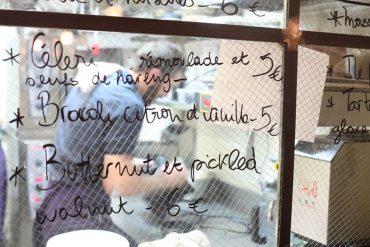 6€
* Céleri rémoulade et 5€
oeufs de hareng -
* Brocoli citron et vanille - 5€
* Butternut et pickled
walnut - 6€
* Île
* Tart
glace